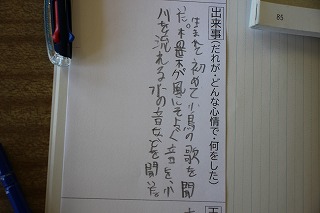 出来事(だれが・どんな心情で・何をした)
生まれて初めて小鳥の歌を聞い
た。木の葉が風にそよぐ音を、小
川を流れる水の音などを聞いた。
85